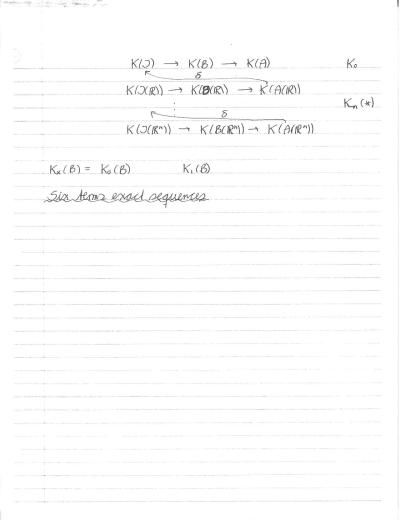 K(J) → K(B) → K(A) K₀
δ
K(J(ℝ)) → K(B(ℝ)) → K(A(ℝ))
⋮ Kₙ(*)
δ
K(J(ℝⁿ)) → K(B(ℝⁿ)) → K(A(ℝⁿ))
K_*(B) = K₀(B) K₁(B)
Six terms exact sequences